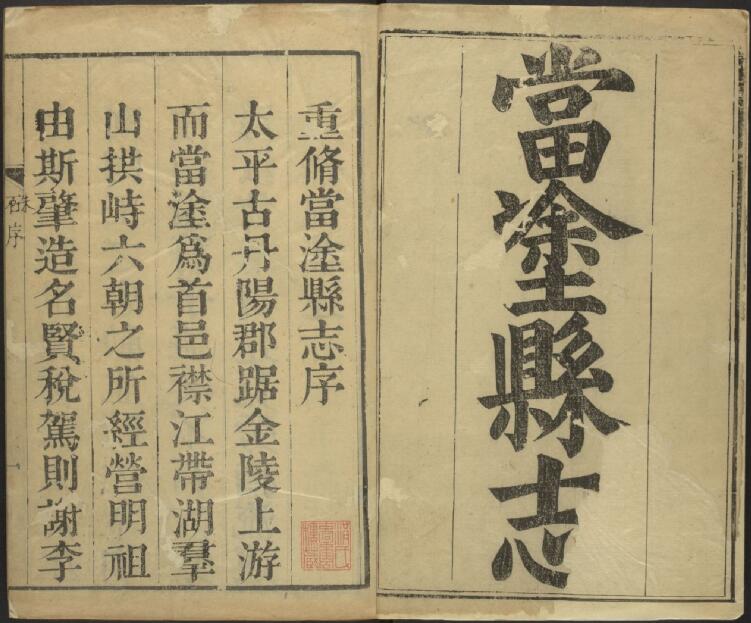 當塗縣志
重脩當塗縣志序
太平古丹陽郡踞金陵上游
而當塗爲首邑襟江帶湖羣
山拱峙六朝之所經營明祖
由斯肇造名賢稅駕則謝李
序
一